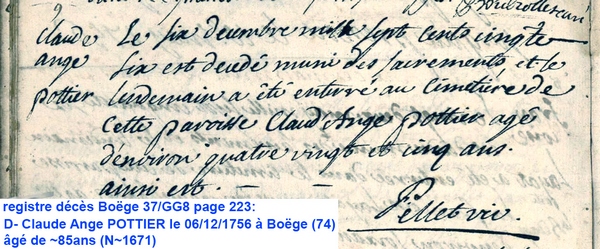 claude
ange
pottier
Le six decembre mill sept cents cinqte
six est decedé muni des sacrements, et le
lendemain a été enterré au Cimetiére de
cette paroisse Claud'Ange pottier agé
d'environ quatre vingt et cinq ans.
ainsi est.
Pellet vic.
registre décès Boëge 37/GG8 page 223:
D- Claude Ange POTTIER le 06/12/1756 à Boëge (74)
âgé de ~85ans (N~1671)